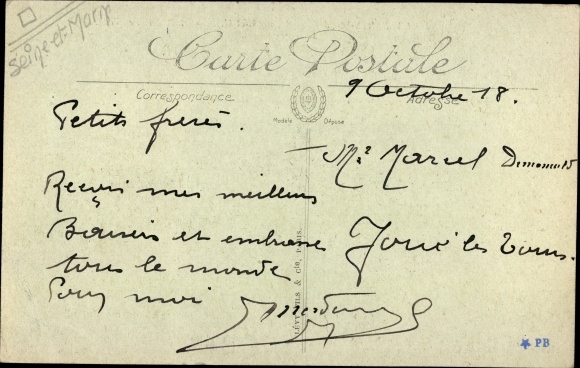 Seine-et-Marne
Carte Postale
Correspondance
Adresse
Modèle Déposé
9 Octobre 18.
Petits frères.
Mr Marcel
Reçevis mes meilleurs
Baisers et embrasse
Jouÿ les Tours.
tous le monde
Pour moi
LÉVY FILS & Cie, PARIS.
PB